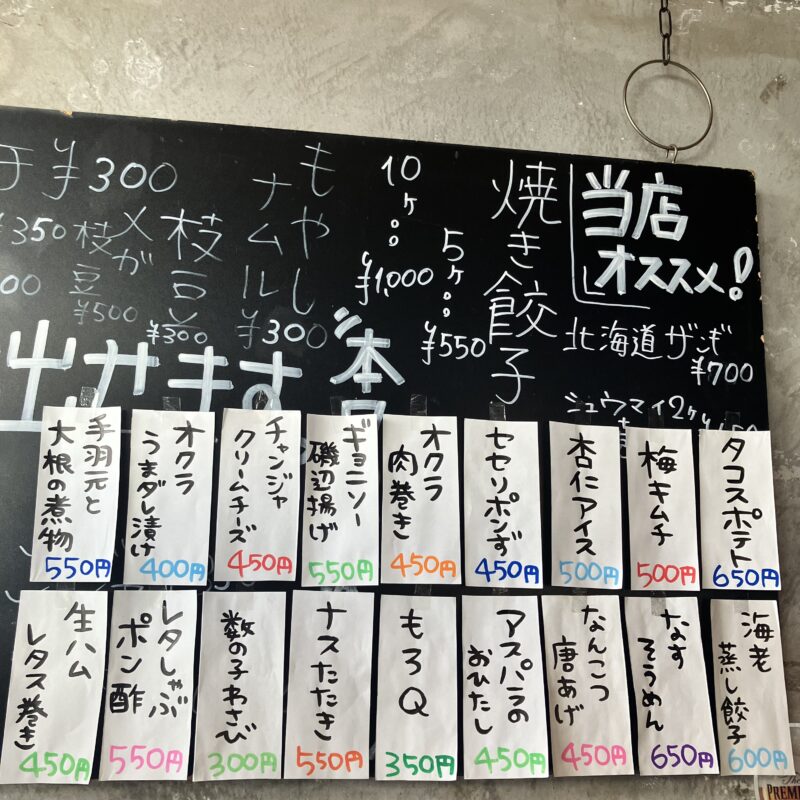 当店
オススメ!
北海道ザンギ
¥700
シュウマイ2ケ
焼き餃子
5ケ。。
¥550
10ケ。。
¥1,000
もやし
ナムル
¥300
枝豆
¥300
メガ
枝豆
¥500
¥350
チ¥300
出せます。
タコスポテト
650円
梅キムチ
500円
杏仁アイス
500円
セセリポンず
450円
オクラ
肉巻き
450円
ギョニソー
磯辺揚げ
550円
チャンジャ
クリームチーズ
450円
オクラ
うまダレ漬け
400円
手羽元と
大根の煮物
550円
海老
蒸し餃子
600円
なす
そうめん
650円
なんこつ
唐あげ
450円
アスパラの
おひたし
450円
もろQ
350円
ナスたたき
550円
数の子わさび
300円
レタしゃぶ
ポン酢
550円
生ハム
レタス巻き
450円